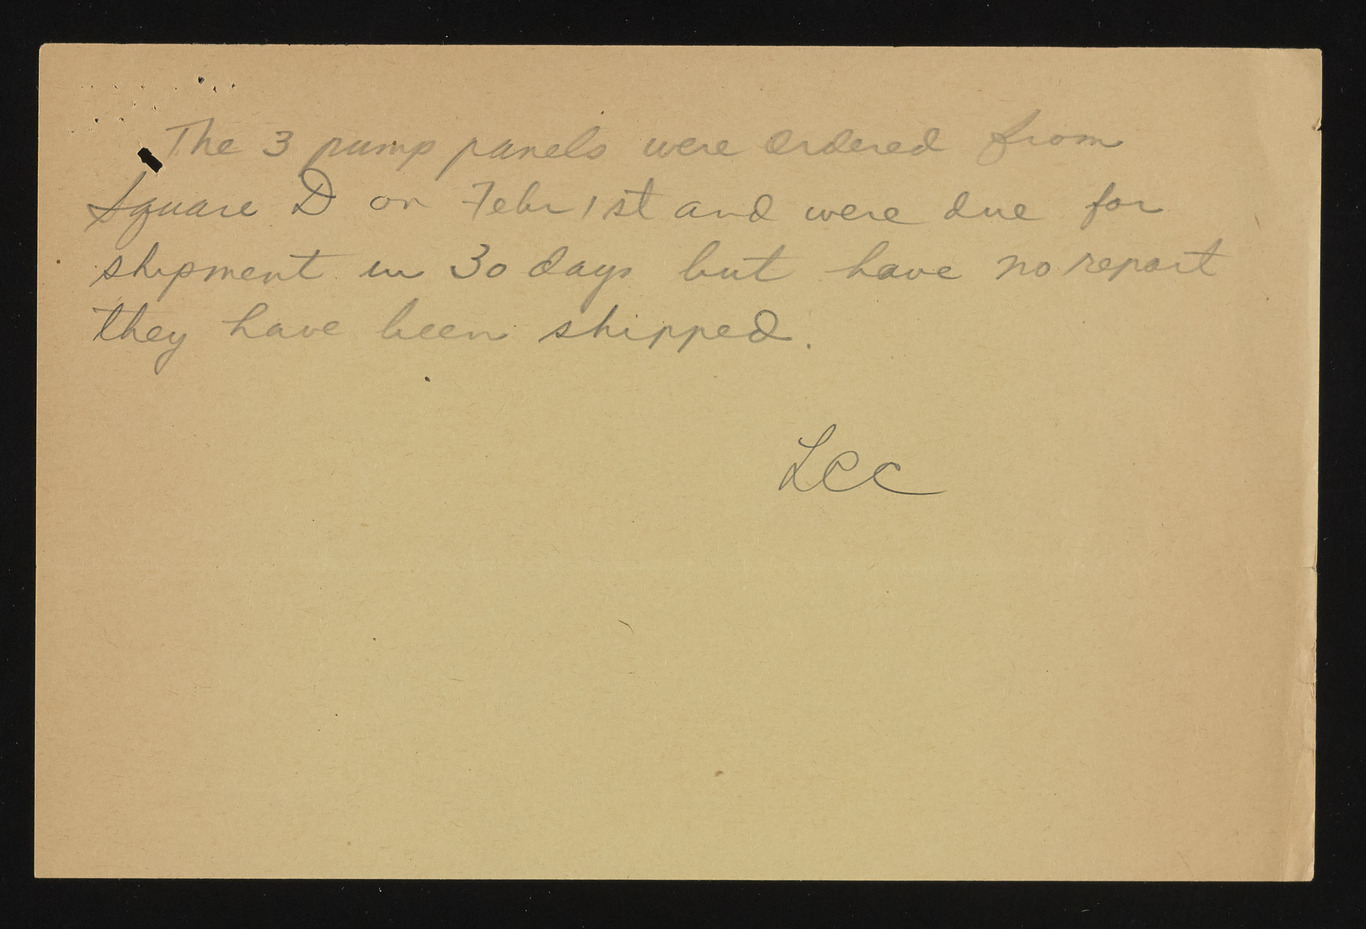 The 3 pump panels were ordered from
Square D on Febr 1st and were due for
shipment in 30 days but have no report
they have been shipped.
LCC